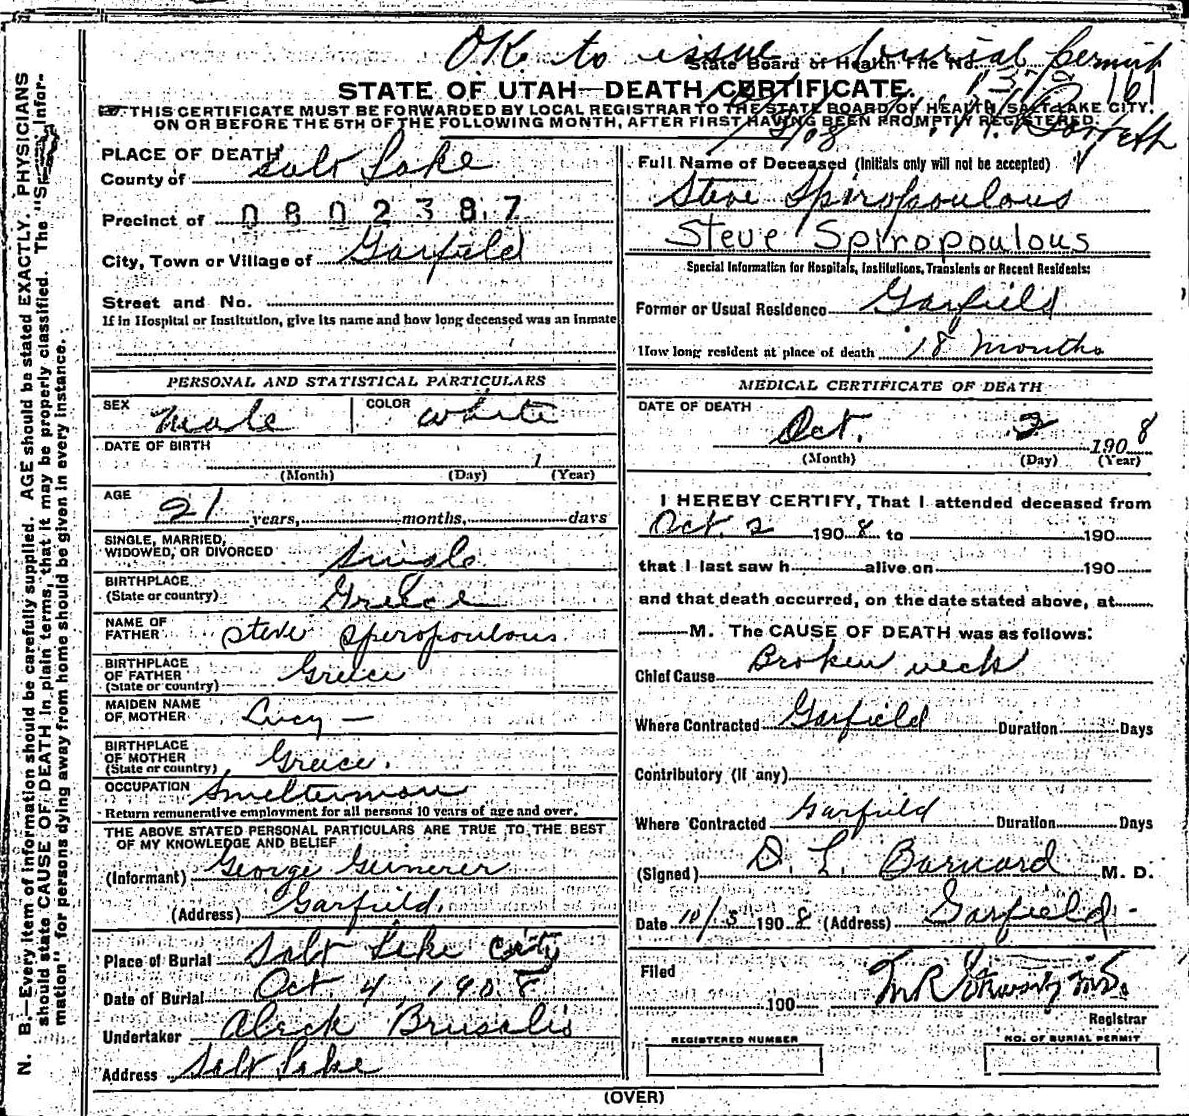 OK to issue burial permit
State Board of Health File No.
161
STATE OF UTAH—DEATH CERTIFICATE.
THIS CERTIFICATE MUST BE FORWARDED BY LOCAL REGISTRAR TO THE STATE BOARD OF HEALTH, SALT LAKE CITY,
ON OR BEFORE THE 5TH OF THE FOLLOWING MONTH, AFTER FIRST HAVING BEEN PROMPTLY REGISTERED.
PLACE OF DEATH
County of Salt Lake
Precinct of 0802387
City, Town or Village of Garfield
Street and No.
If in Hospital or Institution, give its name and how long deceased was an inmate
Full Name of Deceased (Initials only will not be accepted)
Steve Spiropoulous
Steve Spiropoulous
Special Information for Hospitals, Institutions, Transients or Recent Residents:
Former or Usual Residence Garfield
How long resident at place of death 18 months
PERSONAL AND STATISTICAL PARTICULARS
SEX male COLOR white
DATE OF BIRTH
(Month) (Day) 1 (Year)
AGE
21 years, months, days
SINGLE, MARRIED,
WIDOWED, OR DIVORCED single
BIRTHPLACE
(State or country) Greece
NAME OF
FATHER Steve Speropoulous
BIRTHPLACE
OF FATHER
(State or country) Greece
MAIDEN NAME
OF MOTHER Lucy —
BIRTHPLACE
OF MOTHER
(State or country) Greece.
OCCUPATION Smelterman
Return remunerative employment for all persons 10 years of age and over.
THE ABOVE STATED PERSONAL PARTICULARS ARE TRUE TO THE BEST
OF MY KNOWLEDGE AND BELIEF
(Informant) George
(Address) Garfield.
Place of Burial Salt Lake City
Date of Burial Oct 4, 1908
Undertaker Aleck Brusalis
Address Salt Lake
MEDICAL CERTIFICATE OF DEATH
DATE OF DEATH
Oct. 2 1908
(Month) (Day) (Year)
I HEREBY CERTIFY, That I attended deceased from
Oct. 2 1908 to 190
that I last saw h alive on 190
and that death occurred, on the date stated above, at
M. The CAUSE OF DEATH was as follows:
Chief Cause Broken neck
Where Contracted Garfield Duration Days
Contributory (if any)
Where Contracted Garfield Duration Days
(Signed) D. L. Barnard M. D.
Date 10/5 1908 (Address) Garfield
Filed
190
Registrar
REGISTERED NUMBER
NO. OF BURIAL PERMIT
(OVER)
N. B.—Every item of information should be carefully supplied. AGE should be stated EXACTLY. PHYSICIANS
should state CAUSE OF DEATH in plain terms, that it may be properly classified. The "Special Infor-
mation" for persons dying away from home should be given in every instance.